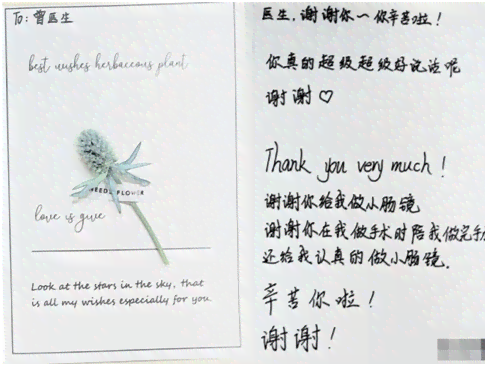 To: 曾医生
best wishes herbaceous plant
NEEDL FLOWER
love is give
Look at the stars in the sky, that
is all my wishes especially for you.
医生,谢谢你~你辛苦啦!
你真的超级超级好说话呢
谢谢♡
Thank you very much!
谢谢你给我做小肠镜
谢谢你在我做手术时陪我做完手
还给我认真的做小肠镜.
辛苦你啦!
谢谢!